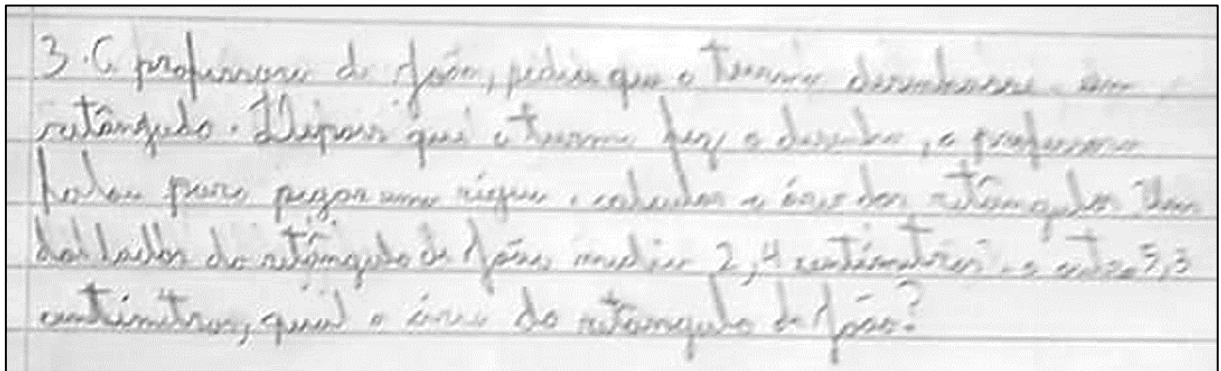 3. A professora de João, pediu que a turma desenhasse um
retângulo. Depois que a turma fez o desenho, a professora
falou para pegar uma régua e calcular a área dos retângulos. Um
dos lados do retângulo de João media 2,4 centímetros e outro 5,3
centímetros, qual a área do retângulo de João?